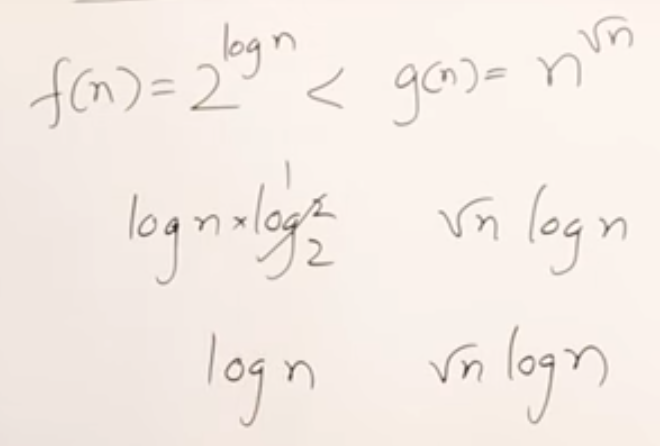 f(n) = 2^log n < g(n) = n^√n
log n × log₂2 1 √n log n
log n √n log n